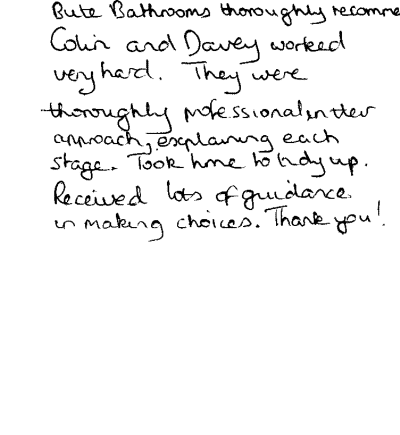 Bute Bathrooms thoroughly recomme
Colin and Davey worked
very hard. They were
thoroughly professional in their
approach, explaining each
stage. Took time to tidy up.
Received lots of guidance
in making choices. Thank you!